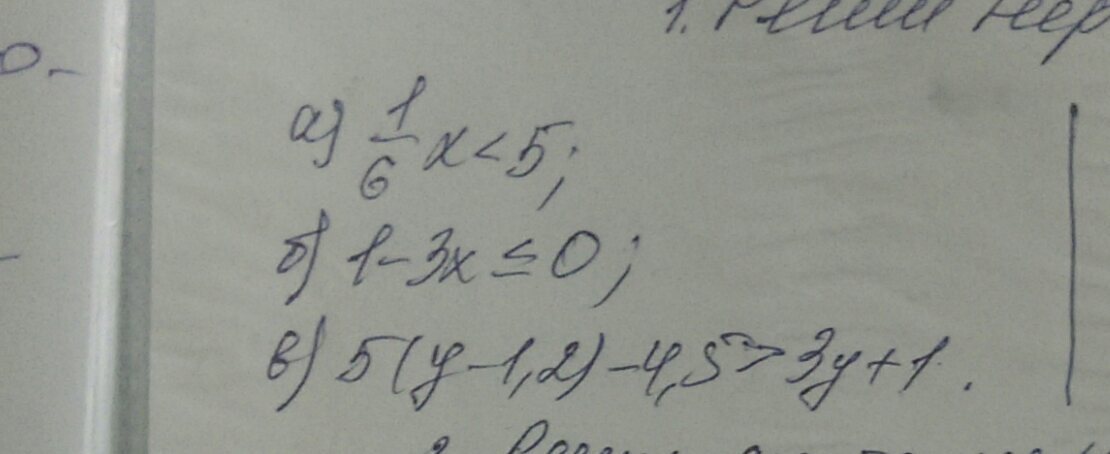 1. Реши нер
а) 1/6 x < 5;
б) 1 - 3x ≤ 0;
в) 5(y - 1,2) - 4,5 > 3y + 1.